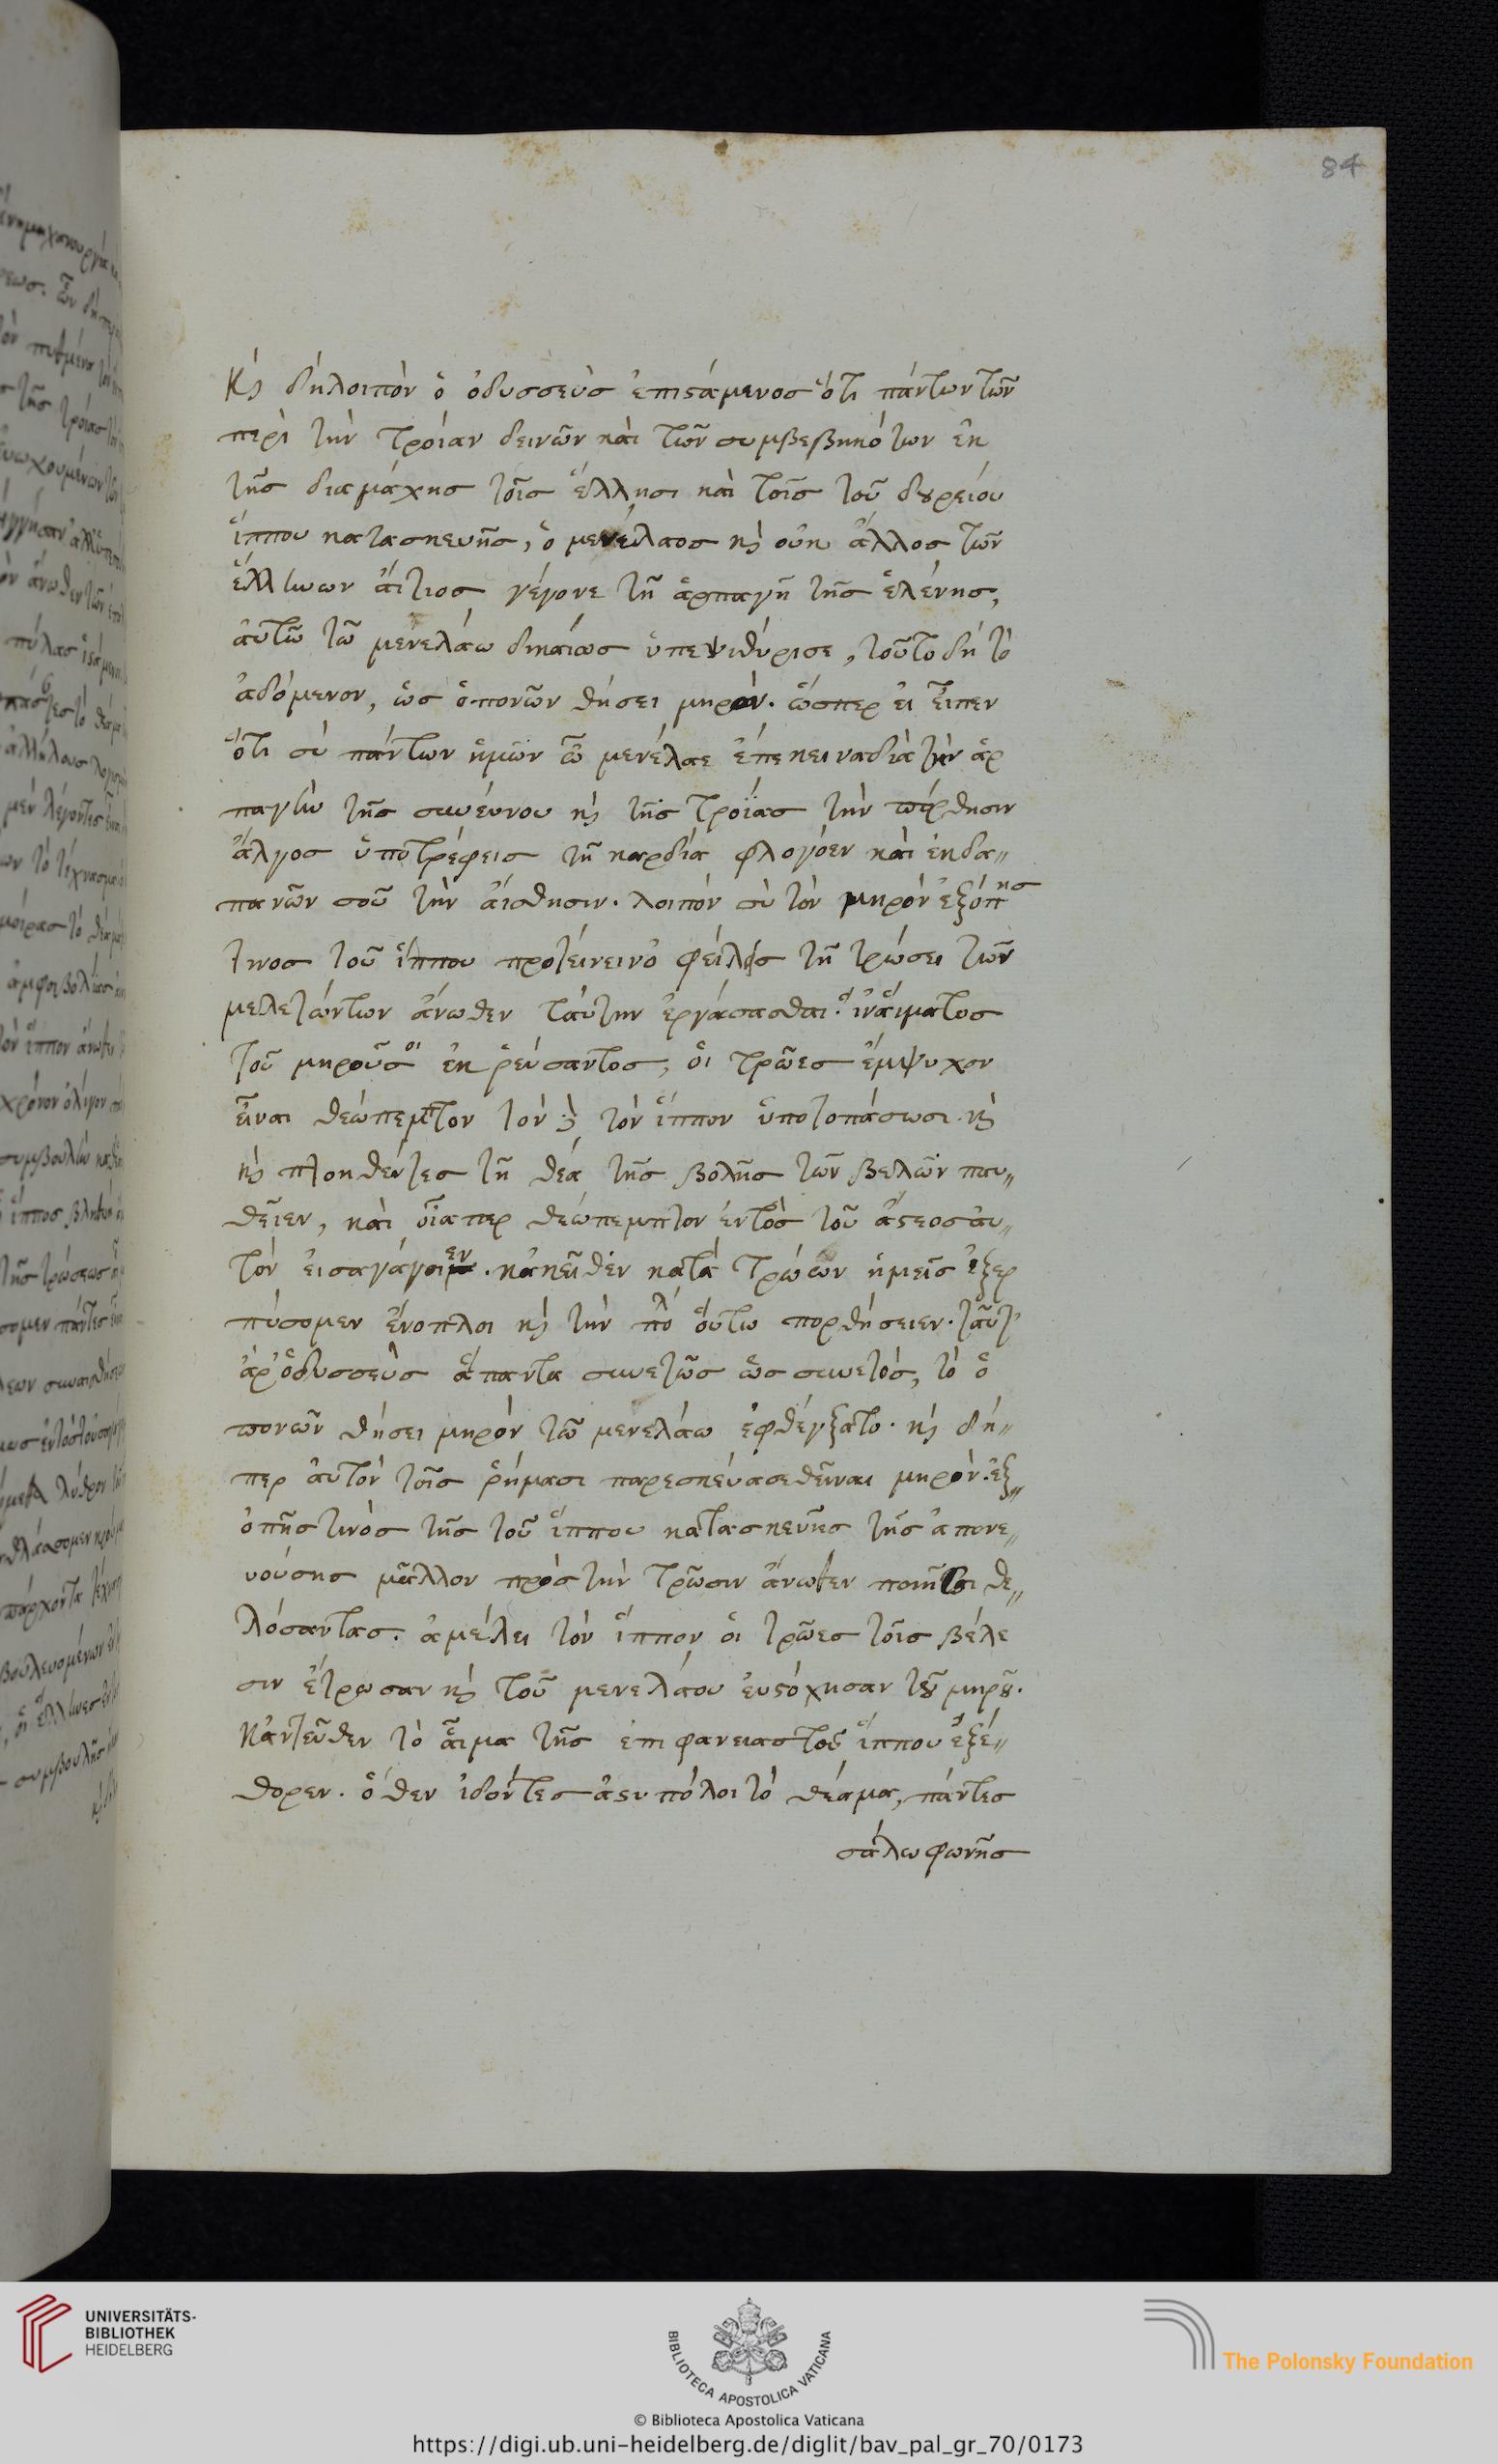 84
Κς δὴ λοιπὸν ὁ ὀδυσσεὺς ἐπιστάμενος ὅτι πάντων τῶν
περὶ τὴν τροίαν δεινῶν καὶ τῶν συμβεβηκότων ἐκ
τῆς διαμάχης τοῖς ἕλλησι καὶ τοῖς τοῦ δουρείου
ἵππου κατασκευῆς, ὁ μενέλαος κς οὐκ ἄλλος τῶν
ἑλλήνων ἄιτιος γέγονε τῆ ἁρπαγῆ τῆς ἑλένης,
ἀυτῶ τῶ μενελάω δικαίως ὑπεψιθύρισε, τοῦτο δὴ τὸ
ἀδόμενον, ὡς ὁ πονῶν θήσει μηρόν. ὥσπερ ἐι ἖ιπεν
ὅτι σὺ πάντων ἡμῶν ὦ μενέλαε ἐπέκεινα διὰ τὴν ἁρ
παγὴν τῆς συνεύνου κς τῆς τροίας τὴν πόρθησιν
ἄλγος ὑποτρέφεις τῆ καρδία φλογόεν καὶ ἐκδα〃
πανῶν σοῦ τὴν ἄισθησιν. λοιπὸν σὺ τὸν μηρὸν ἐξόπης
τινος τοῦ ἵππου προτείνειν ὀφείλεις τῆ τρώσει τῶν
μελετώντων ἄνωθεν ταύτην ἐργάσασθαι. ἵν ἅιματος
τοῦ μηροῦ σοι ἐκ ῥεύσαντος, ὁι τρῶες ἔμψυχον
἖ιναι θεώπεμπτον τὸν τὸν ἵππον ὑποτοπάσωσι. κς
κς πτοηθέντες τῆ θέα τῆς βολῆς τῶν βελῶν παυ〃
θεῖεν, καὶ ὁῖα περ θεώπεμπτον ἐντὸς τοῦ ἄστεος ἀυ〃
τὸν ἐισαγάγοιεν. κἀκεῖθεν κατὰ τρώων ἡμεῖς ἐξερ
πύσομεν ἔνοπλοι κς τὴν πόλ ὅυτω πορθήσειεν. ταῦτ
ἀρ ὁδυσσεὺς ἅπαντα συνετῶς ὡς συνετός, τὸ ὁ
πονῶν θήσει μηρὸν τῶ μενελάω ἐφθέγξατο. κς δή〃
περ ἀυτὸν τοῖς ῥήμασι παρεσκεύασε θεῖναι μηρόν. ἐξ〃
ὀπῆς τινὸς τῆς τοῦ ἵππου κατασκευῆς τῆς ἀπονε〃
υούσης μᾶλλον πρὸς τὴν τρῶσιν ἄνωθεν ποιῆσαι θε〃
λόσαντας. ἀμέλει τὸν ἵππον ὁι τρῶες τοῖς βέλε
σιν ἔτρωσαν κς τοῦ μενελάου ἐυστόχησαν τοῦ μηροῦ.
Κἀντεῦθεν τὸ ἇιμα τῆς ἐπιφανειας τοῦ ἵππου ἐξέ〃
θορεν. ὅθεν ἰδόντες ἀστυπόλοι τὸ θέαμα, πάντες
σάλω φωνῆς
UNIVERSITÄTS-
BIBLIOTHEK
HEIDELBERG
BIBLIOTECA APOSTOLICA VATICANA
The Polonsky Foundation
© Biblioteca Apostolica Vaticana
https://digi.ub.uni-heidelberg.de/diglit/bav_pal_gr_70/0173